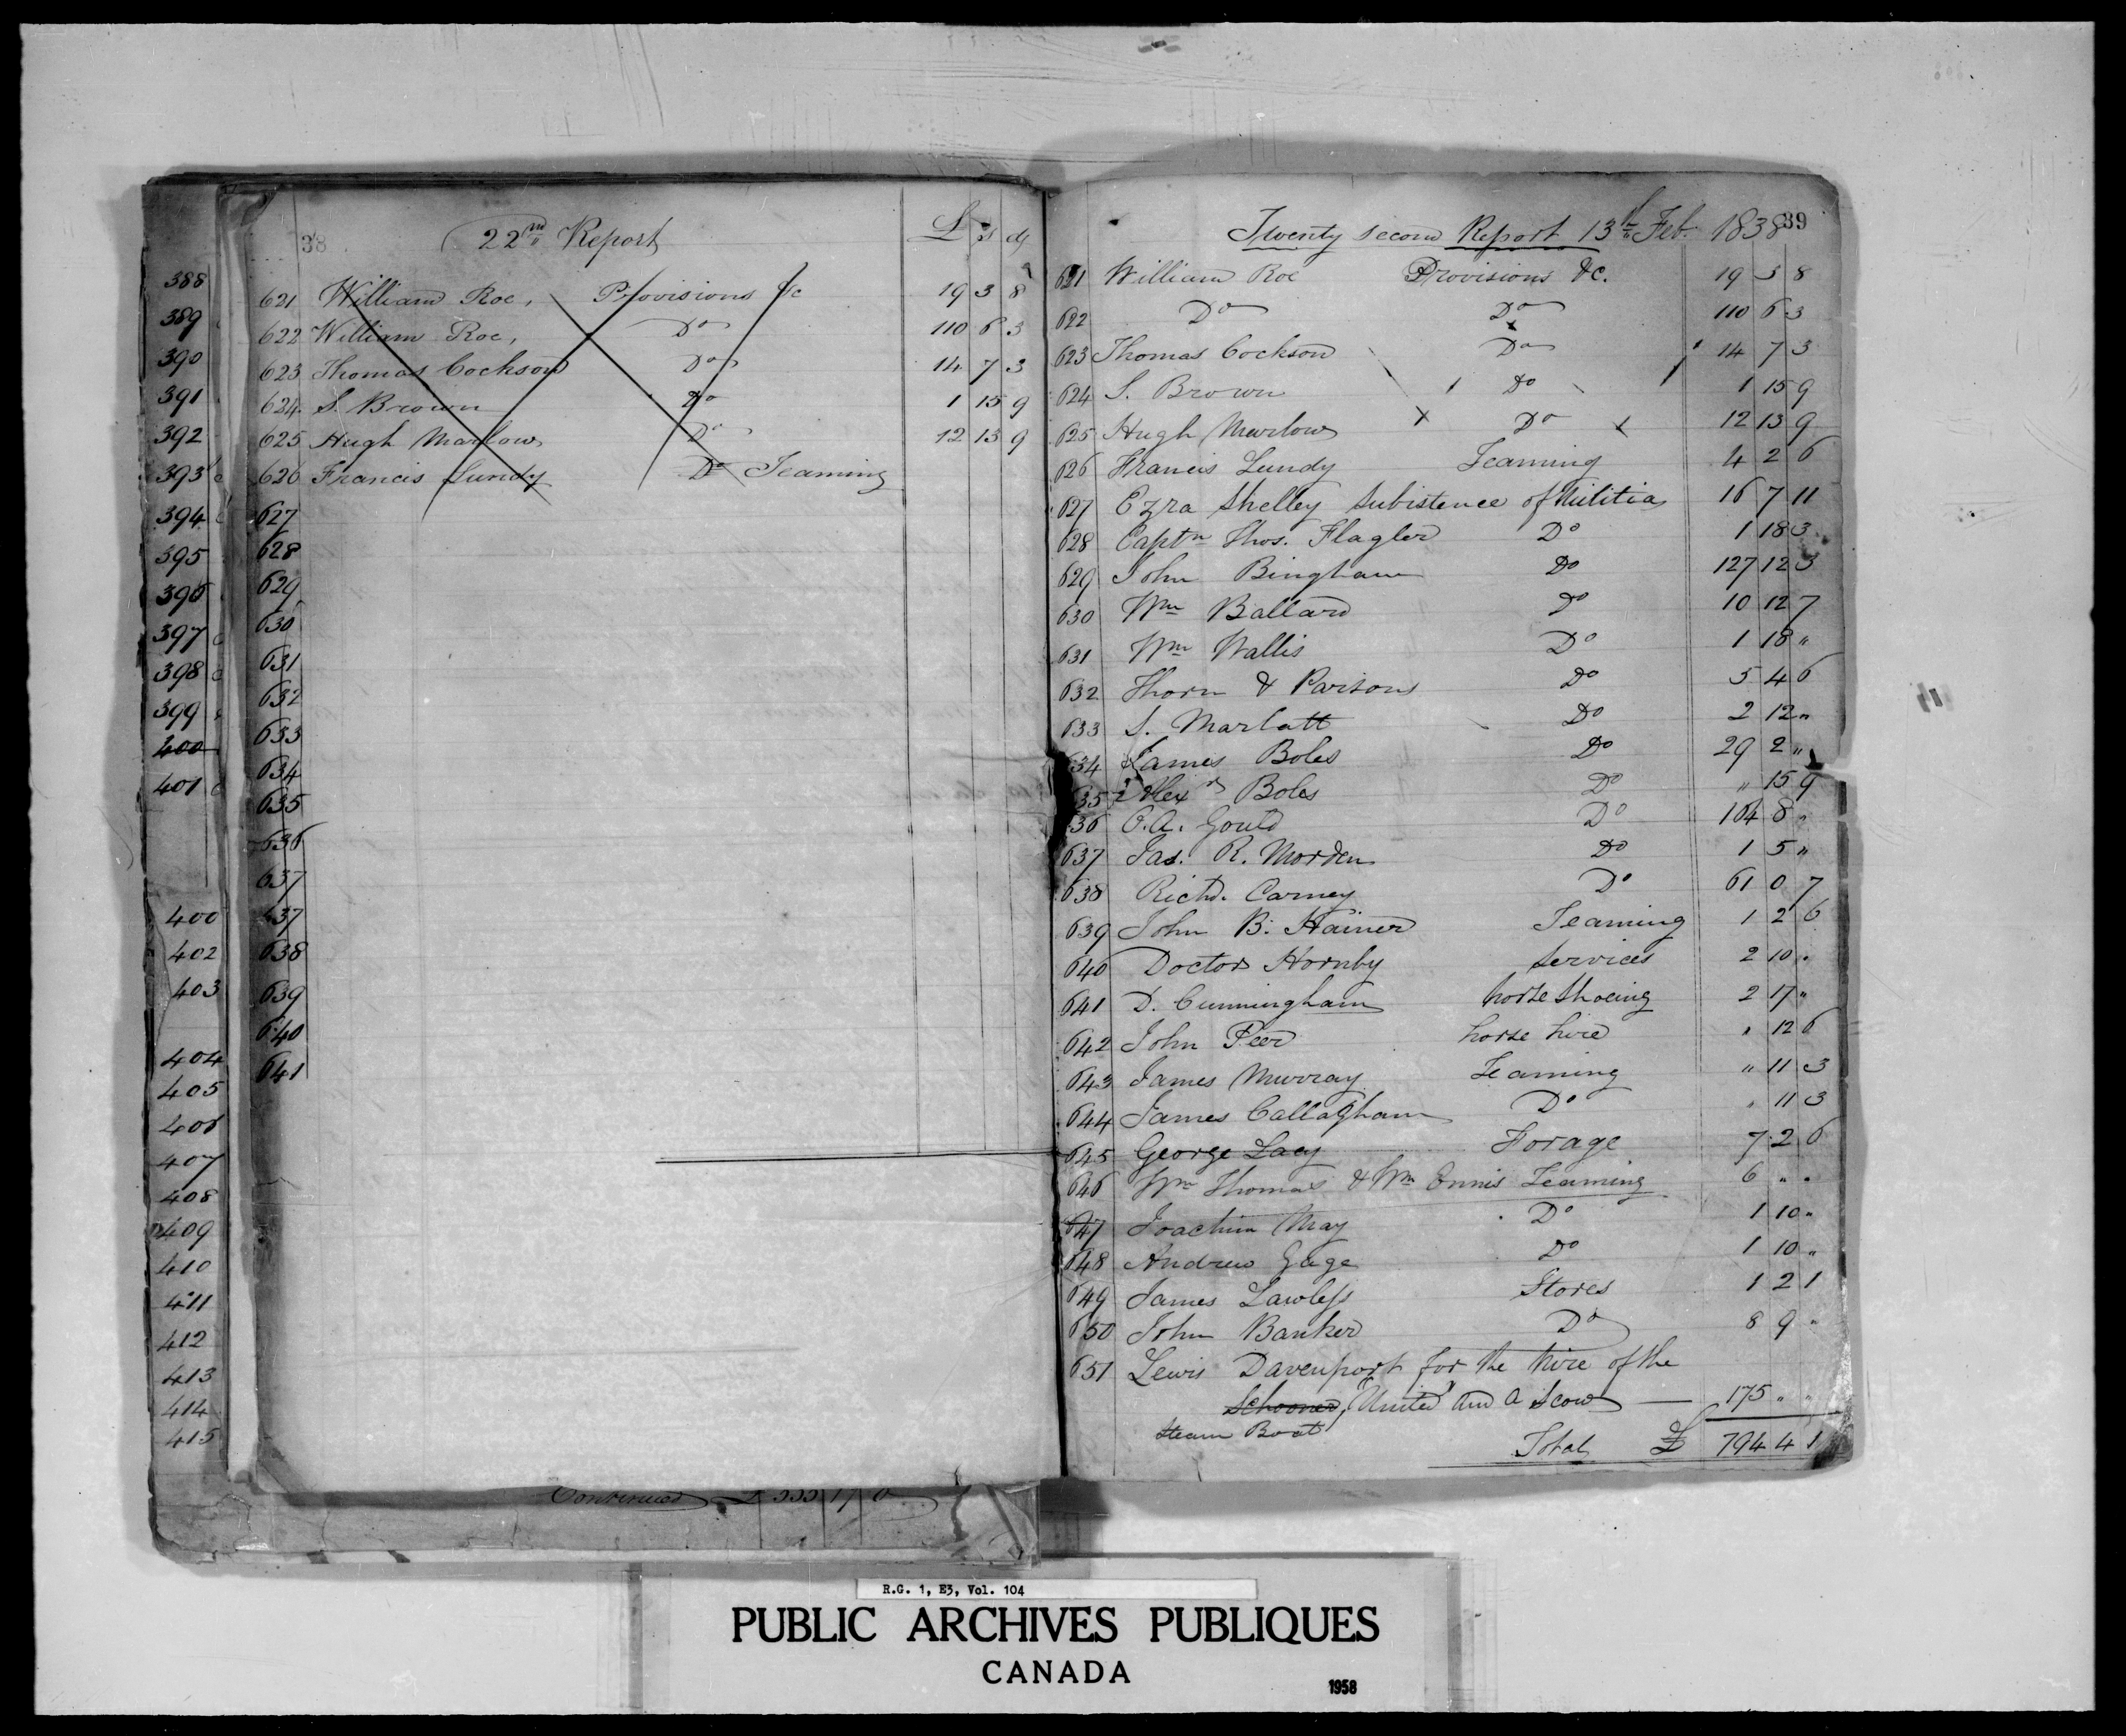 388
389
390
391
392
393
394
395
396
397
398
399
400
401
400
402
403
404
405
406
407
408
409
410
411
412
413
414
415
38
22nd Report £ s d
621 William Roe, Provisions &c 19 3 8
622 William Roe, Do 110 6 3
623 Thomas Cockson Do 14 7 3
624 S. Brown Do 1 15 9
625 Hugh Marlow Do 12 13 9
626 Francis Lundy Do Teaming
627
628
629
630
631
632
633
634
635
636
637
637
638
639
640
641
Continued £ 17
Twenty second Report 13th Feb. 1838 39
621 William Roe Provisions &c. 19 3 8
622 Do Do 110 6 3
623 Thomas Cockson Do 14 7 3
624 S. Brown Do 1 15 9
625 Hugh Marlow Do 12 13 9
626 Francis Lundy Teaming 4 2 6
627 Ezra Shelley Subistence of Militia 16 7 11
628 Captn Thos. Flagler Do 1 18 3
629 John Bingham Do 127 12 3
630 Wm Ballard Do 10 12 7
631 Wm Wallis Do 1 18 "
632 Thorn & Parsons Do 5 4 6
633 S. Marlatt Do 2 12 "
634 James Boles Do 29 2 "
635 Alexr Boles Do " 15 9
636 O.A. Gould Do 104 8 "
637 Jas. R. Morden Do 1 5 "
638 Richd. Carney Do 61 0 7
639 John B. Hainer Teaming 1 2 6
640 Doctor Hornby Services 2 10 "
641 D. Cunningham horse Shoeing 2 17 "
642 John Peer horse hire " 12 6
643 James Murray Teaming " 11 3
644 James Callaghan Do " 11 3
645 George Lacy Forage 7 2 6
646 Wm Thomas & Wm Ennis Teaming 6 " "
647 Joachim May Do 1 10 "
648 Andrew Gage Do 1 10 "
649 James Lawless Stores 1 2 1
650 John Banker Do 8 9 "
651 Lewis Davenport for the hire of the
Schooner, "United" and a Scow — 175 " "
Steam Boat
Total £ 794 4 1
R.G. 1, E3, Vol. 104
PUBLIC ARCHIVES PUBLIQUES
CANADA
1958